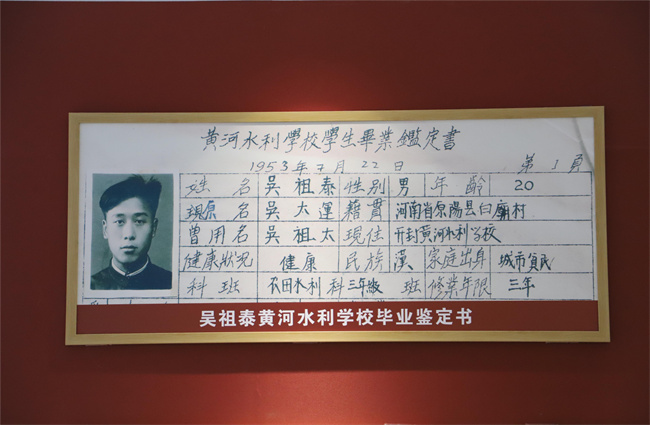 黄河水利學校學生畢業鑑定書
1953年7月22日 第1頁
姓名 吳祖泰 性別 男 年齡 20
現原名 吳大運 籍貫 河南省原陽县白廟村
曾用名 吳祖太 現住 开封黄河水利学校
健康狀况 健康 民族 漢 家庭出身 城市貧民
科班 农田水利科三年級班 修業年限 三年
吴祖泰黄河水利学校毕业鉴定书